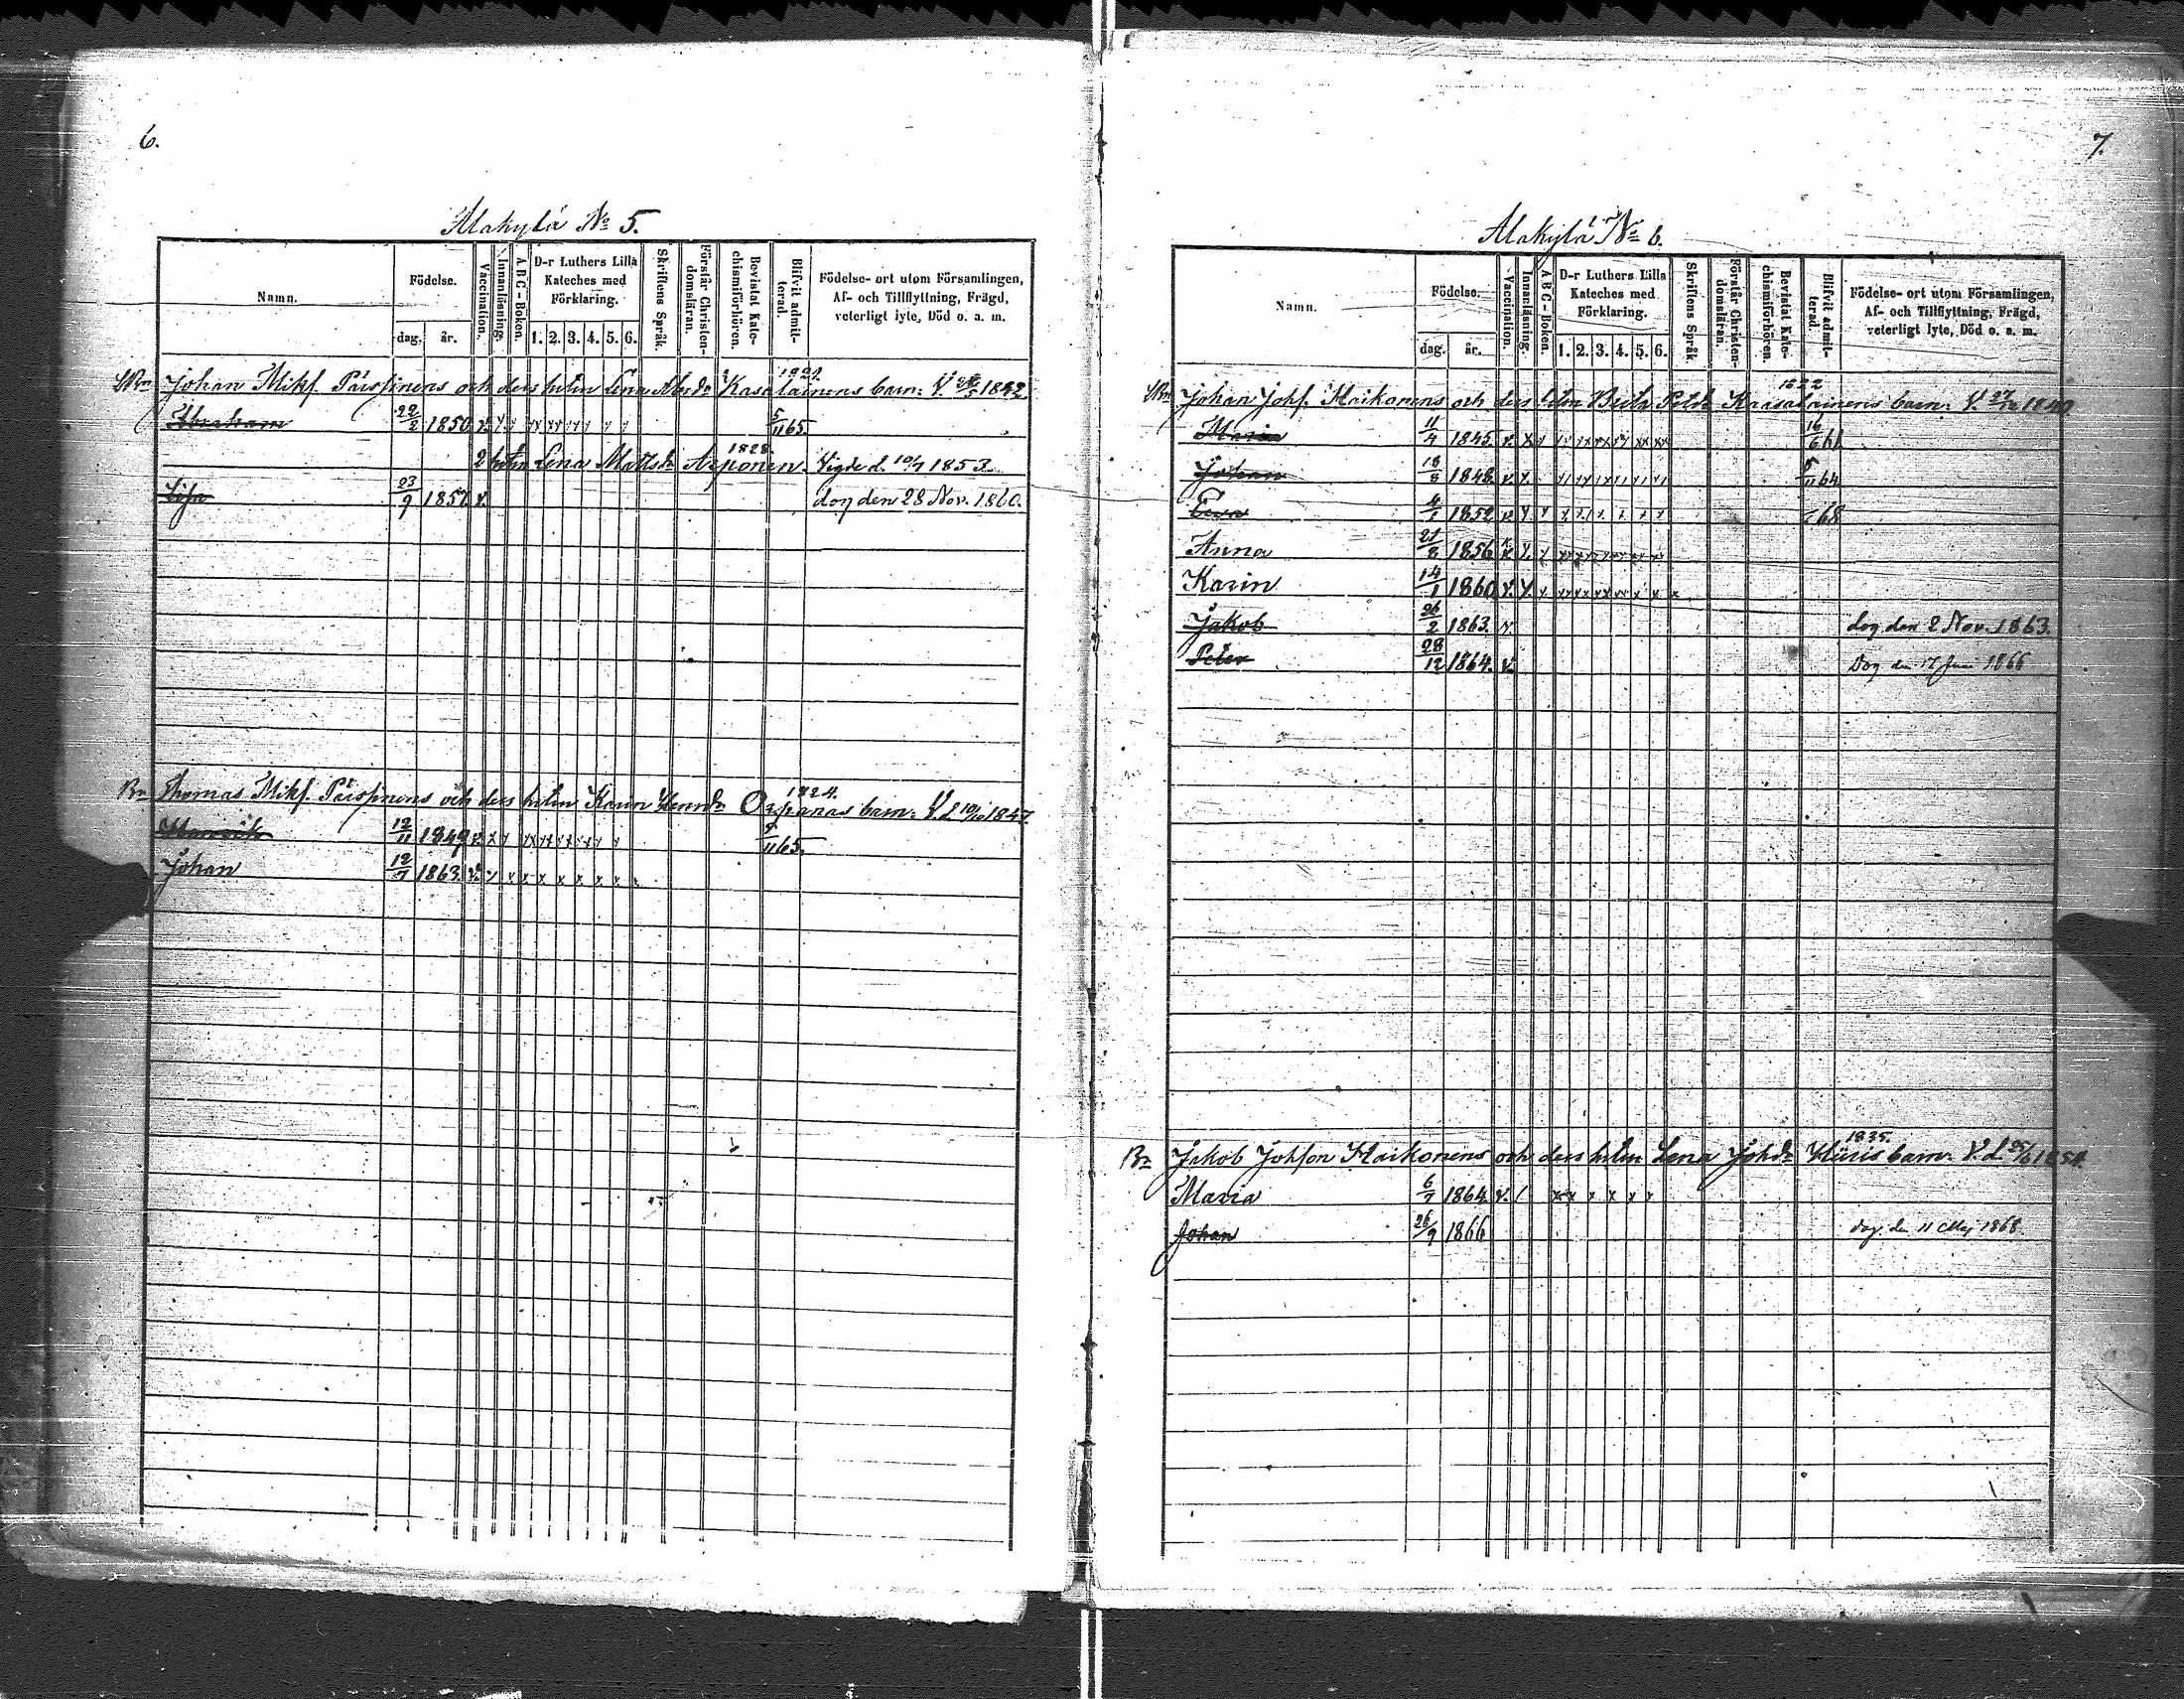 6.
Alakylä No 5.
Namn.
Födelse.
dag.
år.
Vaccination.
Innanläsning.
A B C - Boken.
D-r Luthers Lilla
Kateches med
Förklaring.
1. 2. 3. 4. 5. 6.
Skriftens Språk.
Förstår Christen-
domsläran.
Bevistat Kate-
chismiförhören.
Blifvit admit-
terad.
Födelse- ort utom Församlingen,
Af- och Tillflyttning, Frägd,
veterligt lyte, Död o. a. m.
Johan Mikf. Pärssinens och dess hstru Lena Kasalainens barn: V.
Abraham 22/2 1850. v. 5/11 65.
1828.
2 hstru Lena Mattsdr Arponen. Vigde d. 10/7 1853.
Lisa 23/9 1857. v. dog den 28 Nov. 1860.
1824.
Bn Thomas Mikf. Pärssinens och dess hstru Karin barn: V. d. 1847.
Henrik 12/11 1849 v. 11 65.
Johan 12/7 1863. v.
7.
Alakylä No 6.
Namn.
Födelse.
dag.
år.
Vaccination.
Innanläsning.
A B C - Boken.
D-r Luthers Lilla
Kateches med
Förklaring.
1. 2. 3. 4. 5. 6.
Skriftens Språk.
Förstår Christen-
domsläran.
Bevistat Kate-
chismiförhören.
Blifvit admit-
terad.
Födelse- ort utom Församlingen,
Af- och Tillflyttning, Frägd,
veterligt lyte, Död o. a. m.
1822
Johan Johf. Haikonens och dess Petdr Kaasalainens barn: V.
Maria 11/4 1845. v. 16/6 61
Johan 18/8 1848. v. 5/11 64
Ewa 4/1 1852 v. 68
Anna 21/8 1856
Karin 14/1 1860 v.
Jakob 26/2 1863. v. dog den 2 Nov. 1863.
Peter 28/12 1864. v. Dog den 17 Juni 1866
1835.
Bn Jakob Johsson Haikonens och dess hstru Lena Johdr barn: V. d.
Maria 6/7 1864 v.
Johan 26/9 1866 dog. den 11 Maj 1868.